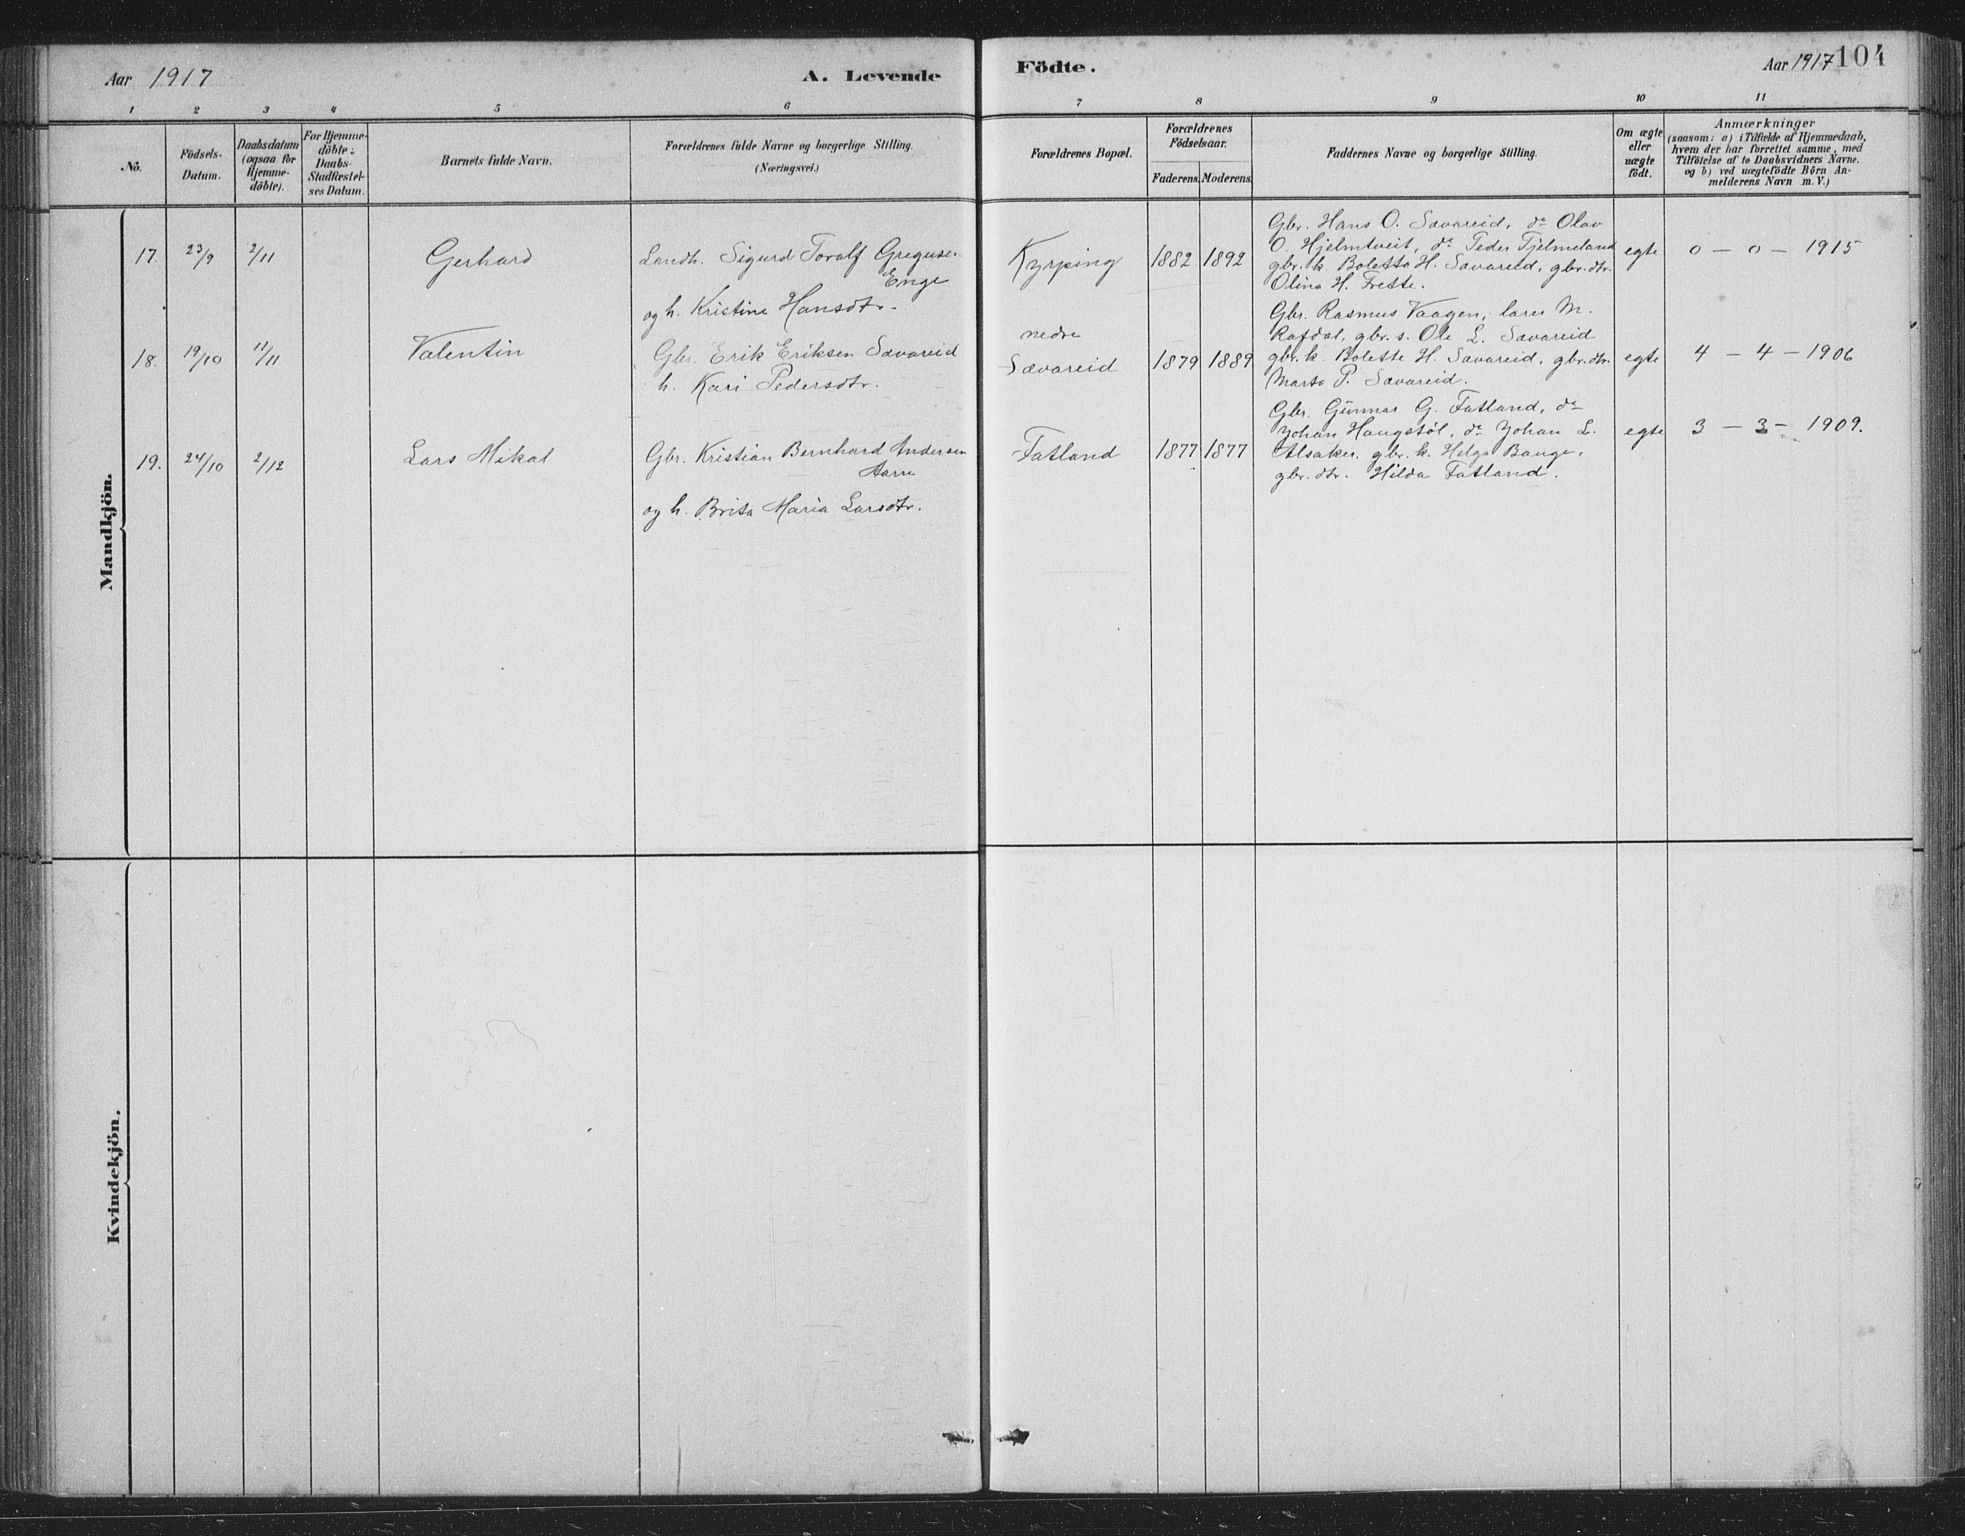 Aar 1917
A. Levende Födte.
Aar 1917 104
1 2 3 4 5 6 7 8 9 10 11
No.
Födsels-
Datum.
Daabsdatum
(ogsaa for
Hjemme-
döbte).
For Hjemme-
döbte:
Daabs-
Stadfæstel-
ses Datum.
Barnets fulde Navn.
Forældrenes fulde Navne og borgerlige Stilling.
(Næringsvei.)
Forældrenes Bopæl.
Forældrenes
Födselsaar.
Faderens. Moderens.
Faddernes Navne og borgerlige Stilling.
Om ægte
eller
uægte
födt.
Anmærkninger
(saasom: a) i Tilfælde af Hjemmedaab,
hvem der har forrettet samme, med
Tilföielse af to Daabsvidners Navne.
og b) ved uægtefödte Börn An-
melderens Navn m. V.)
Mandkjön.
17. 23/9 2/11
Gerhard
Landh. Sigurd Toralf Greguse.
Enge
og h. Kristine Hansdtr.
Kyrping
1882 1892
Gbr. Hans O. Sævareid, do Olav
O. Hjelmtveit, do Peder Fjelmeland
gbr. k. Bolette H. Sævareid, gbr. dtr.
Olina H. Frette.
egte
0 - 0 - 1915
18. 19/10 11/11
Valentin
Gbr. Erik Eriksen Sævareid
h. Kari Pedersdtr.
nedre
Sævareid
1879 1889
Gbr. Rasmus Vaagen, lærer M.
Rafdal, gbr. s. Ole L. Sævareid
gbr. k. Bolette H. Sævareid, gbr. dtr.
Marta P. Sævareid.
egte
4 - 4 - 1906
19. 24/10 2/12
Lars Mikal
Gbr. Kristian Bernhard Andersen
Aarre
og h. Brita Maria Larsdtr.
Fatland
1877 1877
Gbr. Gunnar G. Fatland, do
Johan Haugstøl, do Johan L.
Alsaker. gbr. k. Helga Bauge,
gbr. dtr. Hilda Fatland.
egte
3 - 3 - 1909.
Kvindekjön.